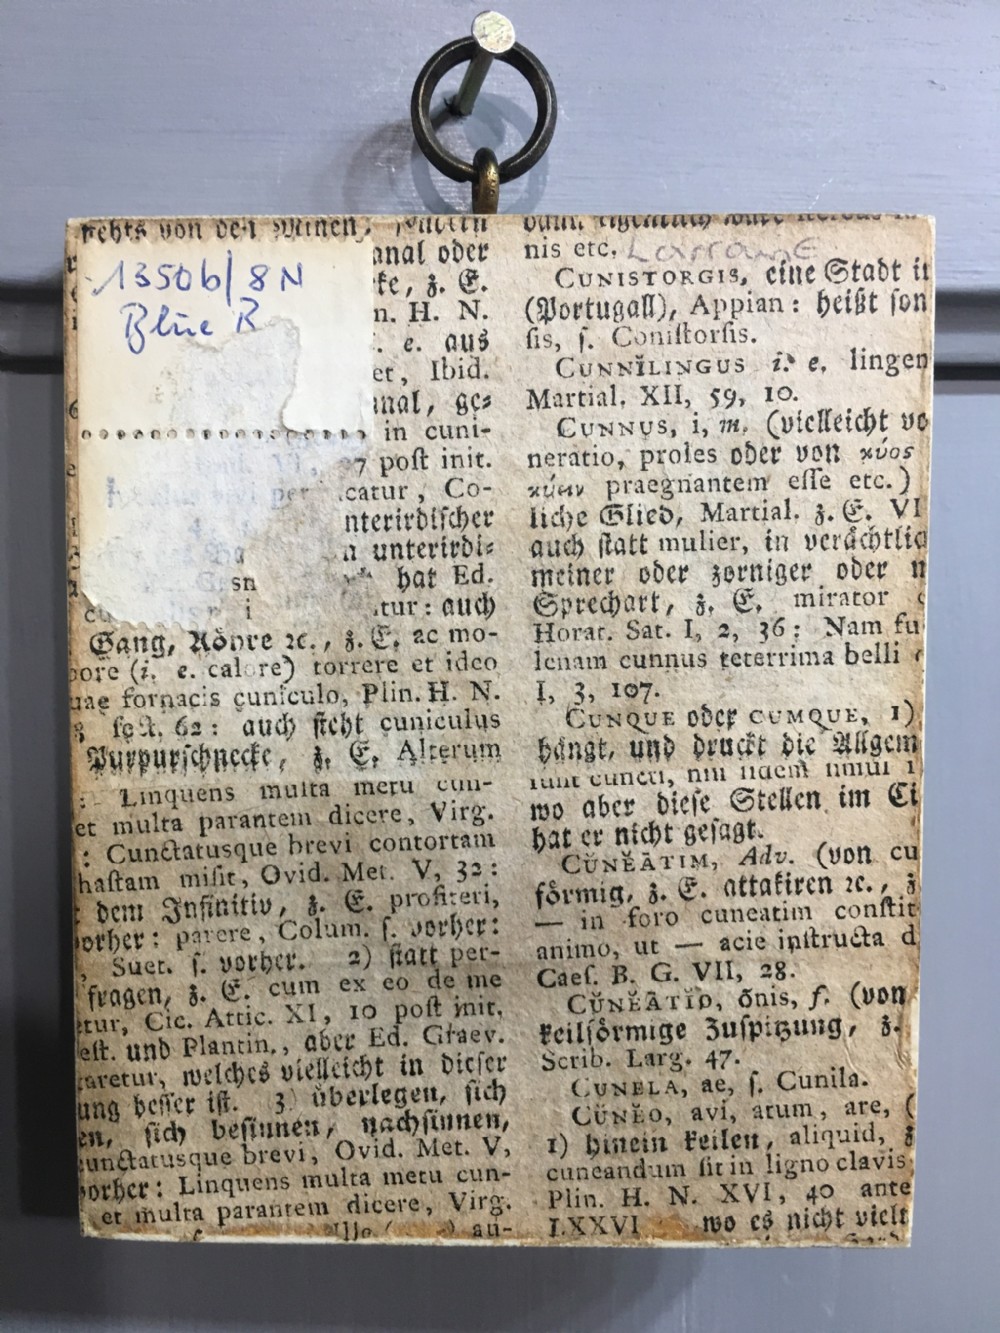 13506/8N
Blue R
von den Minen,
anal oder
ke, z. E.
n. H. N.
. e. aus
et, Ibid.
anal, ge⸗
in cuni-
post init.
catur, Co-
nterirdischer
unterirdi⸗
hat Ed.
tur: auch
Gang, Röhre ꝛc., z. E. ac mo-
pore (i. e. calore) torrere et ideo
uae fornacis cuniculo, Plin. H. N.
sect. 62: auch steht cuniculus
Purpurschnecke, z. E. Alterum
: Linquens multa metu cun-
et multa parantem dicere, Virg.
: Cunctatusque brevi contortam
hastam misit, Ovid. Met. V, 32:
dem Infinitiv, z. E. profiteri,
vorher: parere, Colum. s. vorher:
, Suet. s. vorher. 2) statt per-
fragen, z. E. cum ex eo de me
etur, Cic. Attic. XI, 10 post init.
est. und Plantin., aber Ed. Graev.
taretur, welches vielleicht in dieser
ung besser ist. 3) überlegen, sich
en, sich besinnen, nachsinnen,
cunctatusque brevi, Ovid. Met. V,
vorher: Linquens multa metu cun-
et multa parantem dicere, Virg.
au-
nis etc.
CUNISTORGIS, eine Stadt in
(Portugall), Appian: heißt son
sis, s. Conistorsis.
CUNNĬLINGUS i. e. lingen
Martial. XII, 59, 10.
CUNNUS, i, m. (vielleicht vo
neratio, proles oder von κύος
κύειν praegnantem esse etc.)
liche Glied, Martial. z. E. VI
auch statt mulier, in verächtlic
meiner oder zorniger oder
Sprechart, z. E. mirator c
Horat. Sat. I, 2, 36: Nam fu
lenam cunnus teterrima belli
I, 3, 107.
CUNQUE oder CUMQUE, 1)
hängt, und druckt die Allgem
sunt cuncti, nisi iidem simul
wo aber diese Stellen im Ci
hat er nicht gesagt.
CŬNĔĀTIM, Adv. (von cu
förmig, z. E. attakiren ꝛc., z
— in foro cuneatim constit
animo, ut — acie instructa d
Caes. B. G. VII, 28.
CŬNĔĀTĬO, ōnis, f. (von
keilförmige Zuspitzung, z.
Scrib. Larg. 47.
CUNELA, ae, s. Cunila.
CŬNĔO, avi, atum, are, (
1) hinein keilen, aliquid, z
cuneandum sit in ligno clavis,
Plin. H. N. XVI, 40 ante
LXXVI wo es nicht vielt